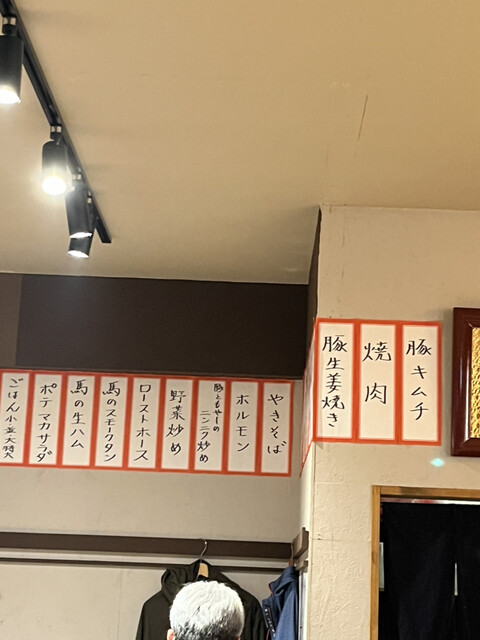 豚キムチ
焼肉
豚生姜焼き
やきそば
ホルモン
豚ともやしの
ニンニク炒め
野菜炒め
ローストホース
馬のスモークタン
馬の生ハム
ポテマカサラダ
ごはん小並大特大